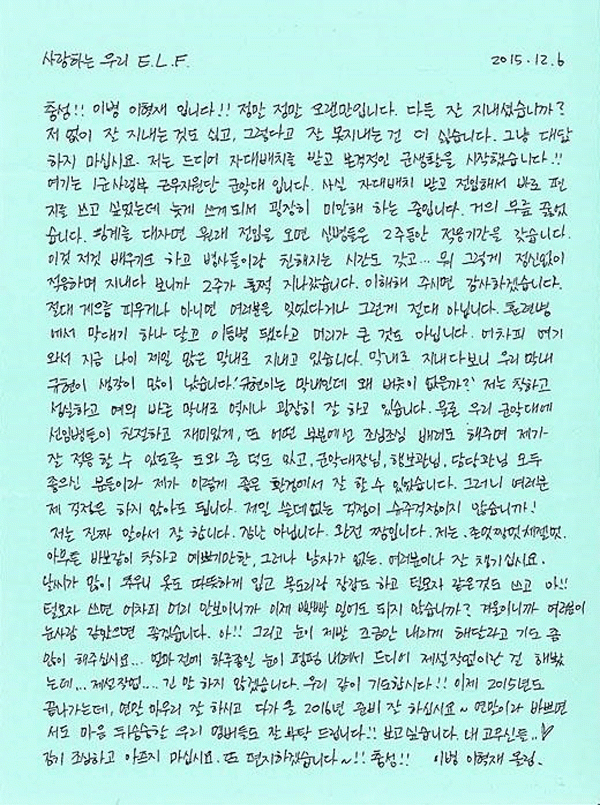 사랑하는 우리 E.L.F. 2015.12.6
충성!! 이병 이혁재 입니다!! 정말 정말 오랜만입니다. 다들 잘 지내셨습니까?
저 없이 잘 지내는 것도 싫고, 그렇다고 잘 못지내는 건 더 싫습니다. 그냥 대답
하지 마십시요. 저는 드디어 자대배치를 받고 본격적인 군생활을 시작했습니다!!
여기는 1군사령부 근무지원단 군악대 입니다. 사실 자대배치 받고 전입해서 바로 편
지를 쓰고 싶었는데 늦게 쓰게되서 굉장히 미안해 하는 중입니다. 거의 무릎 꿇었
습니다. 핑계를 대자면 원래 전입을 오면 신병들은 2주동안 적응기간을 갖습니다.
이것 저것 배우기도 하고 병사들이랑 친해지는 시간도 갖고... 뭐 그렇게 정신없이
적응하며 지내다 보니까 2주가 훌쩍 지나갔습니다. 이해해 주시면 감사하겠습니다.
절대 게으름 피우거나 아니면 여러분을 잊었다거나 그런게 절대 아닙니다. 훈련병
에서 막대기 하나 달고 이등병 됐다고 머리가 큰 것도 아닙니다. 어차피 여기
와서 지금 나이 제일 많은 막내로 지내고 있습니다. 막내로 지내다보니 우리 막내
규현이 생각이 많이 났습니다. '규현이는 막내인데 왜 버릇이 없을까?' 저는 착하고
성실하고 예의 바른 막내로 역시나 굉장히 잘 하고 있습니다. 물론 우리 군악대에
선임병들이 친절하고 재미있게, 또 어떤 부분에선 조심조심 배려도 해주며 제가
잘 적응 할 수 있도록 도와 준 덕도 있고, 군악대장님, 행보관님, 담당관님 모두
좋으신 분들이라 제가 이렇게 좋은 환경에서 잘 할 수 있었습니다. 그러니 여러분
제 걱정은 하지 않아도 됩니다. 제일 쓸데없는 걱정이 슈주걱정이지 않습니까!
저는 진짜 알아서 잘 합니다. 장난 아닙니다. 완전 짱입니다. 저는. 존멋짱멋세젤멋.
아무튼 바보같이 착하고 예쁘기만한, 그러나 남자가 없는. 여러분이나 잘 챙기십시요.
날씨가 많이 추우니 옷도 따뜻하게 입고 목도리랑 장갑도 하고 털모자 같은것도 쓰고 아!!
털모자 쓰면 어차피 머리 안보이니까 이제 빡빡 밀어도 되지 않습니까? 겨울이니까 여러분이
눈사람 같았으면 좋겠습니다. 아!! 그리고 눈이 제발 조금만 내리게 해달라고 기도 좀
많이 해주십시요... 얼마전에 하루종일 눈이 펑펑 내려서 드디어 제설작업이란 건 해봤
는데... 제설작업.... 긴 말 하지 않겠습니다. 우리 같이 기도합시다!! 이제 2015년도
끝나가는데, 연말 마무리 잘 하시고 다가올 2016년 준비 잘 하십시요~ 연말이라 바쁘면
서도 마음 뒤숭숭한 우리 멤버들도 잘 부탁 드립니다!! 보고싶습니다. 내 고무신들..♡
감기 조심하고 아프지 마십시요. 또 편지하겠습니다~!! 충성!! 이병 이혁재 올림.